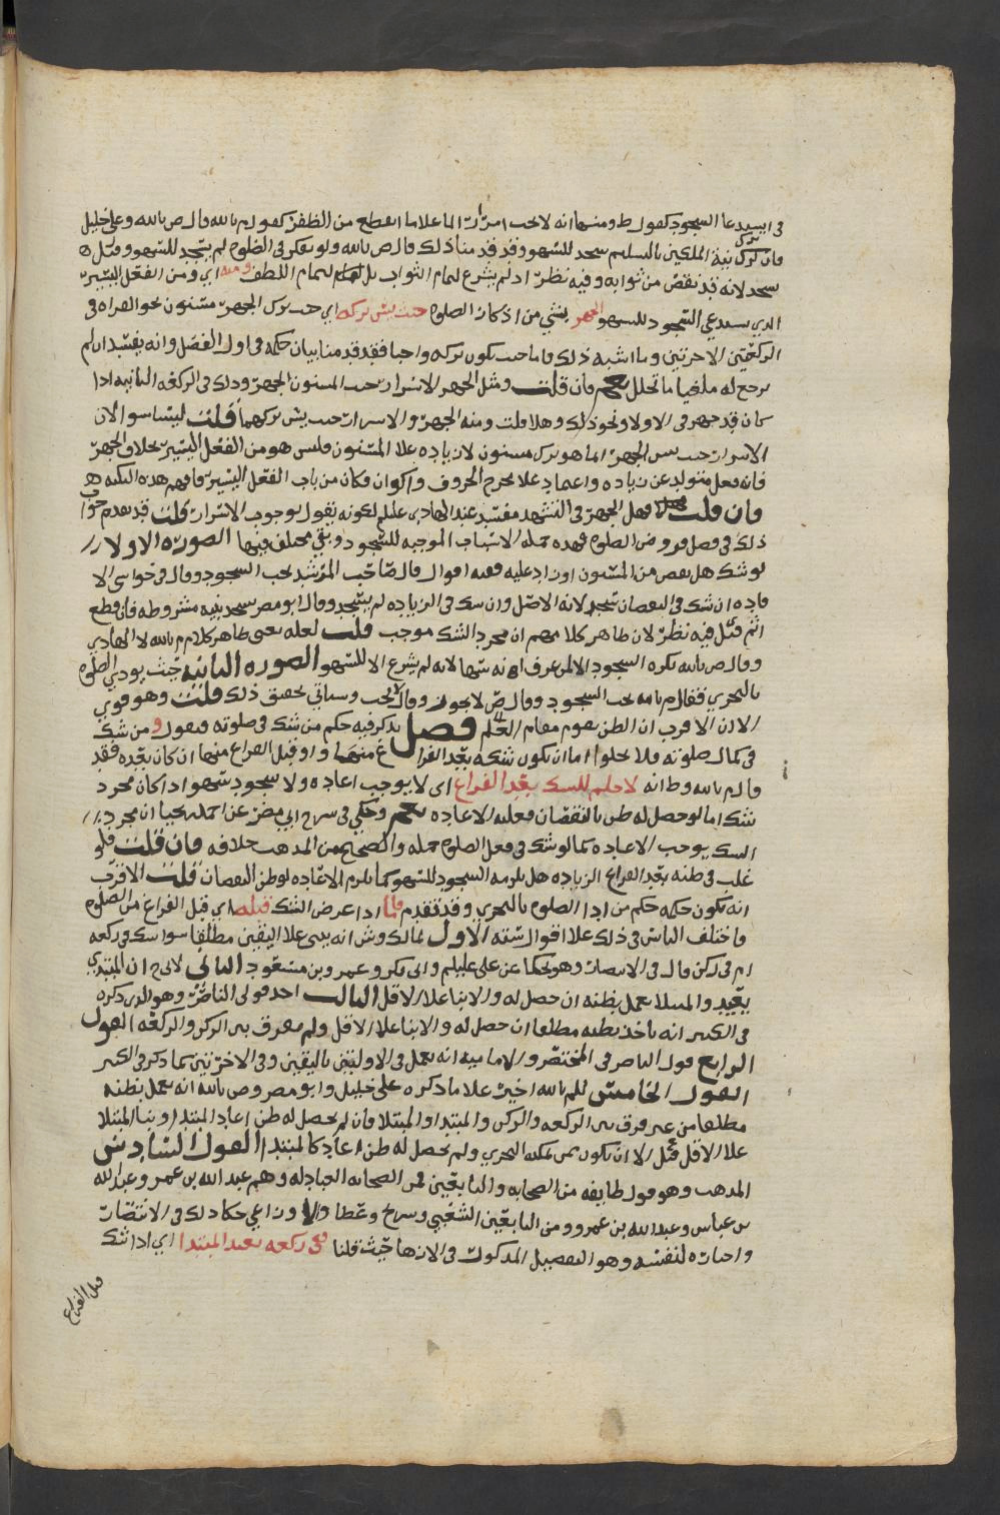 في اسدعا السجود كقول ط ومنها انه لا يجب امرار الما علا ما انقطع من الظفر كقول م بالله وقال ص بالله وعلي خليل
فان ترك نية الملكين بالتسليم سجد للسهو وقد قدمنا ذلك قال ص بالله ولو تفكر في الصلوه لم يسجد للسهو وقيل ه
سجد لانه قد نقص من ثوابه وفيه نظر اذ لم يشرع لتمام الثواب بل لتمام اللطف ومنه اي ومن الفعل اليسير
الذي يستدعي السجود للسهو الجهر بشي من اذكار الصلوه حيث يسن تركه اي حيث ترك الجهر مسنون نحو القراه في
الركعتين الاخرتين وما اشبه ذلك فاما حيث يكون تركه واجبا فقد قدمنا بيان حكمه في اول الفصل وانه يفسد ان لم
يرجع له ملغيا ما تخلل نعم فان قلت ومثل الجهر الاسرار حيث المسنون الجهر وذلك في الركعه الثانيه اذا
كان قد جهر في الاولا ونحو ذلك وهلا قلت ومنه الجهر والاسرار حيث يسن تركهما قلت ليسا سوا لان
الاسرار حيث يسن الجهر انما هو ترك مسنون لا زياده علا المسنون وليس هو من الفعل اليسير بخلاف الجهر
فانه فعل متولد عن زياده واعتماد علا مخرج الحروف واكوان فكان من باب الفعل اليسير فافهم هذه النكته ه
فان قلت فهل الجهر في التشهد مفسد عند الهادي عليلم لكونه يقول بوجوب الاسرار قلت قد تقدم جواب
ذلك في فصل فروض الصلوه فهذه جمله الاسباب الموجبه للسجود وبقي مختلف فيها الصوره الاولا
لو شك هل نقص من المسنون او زاد عليه ففيه اقوال قال صاحب المرشد يجب السجود وقال في حواشي الا
فاده ان شك في النقصان سجد لانه الاصل وان شك في الزياده لم يسجد وقال ابو مضر يسجد بنيه مشروطه فان قطع
اثم قيل فيه نظر لان ظاهر كلامهم ان مجرد الشك موجب قلت لعله يعني ظاهر كلام م بالله لا الهادي
وقال ص بالله يكره السجود الا لمن عرف انه سها لانه لم يشرع الا للسهو الصوره الثانيه حيث يودي الصلوه
بالتحري فقال م بالله يجب السجود وقال ض لا يجوز وقال لا يجب وسياتي تحقيق ذلك قلت وهو قوي
الا ان الاقرب ان الظن يقوم مقام العلم فصل يذكر فيه حكم من شك في صلوته فيقول ومن شك
في كمال صلوته فلا يخلوا اما ان يكون شكه بعد الفراغ منها او قبل الفراغ منها ان كان بعده فقد
قال م بالله وط انه لا حكم للشك بعد الفراغ اي لا يوجب اعاده ولا سجود سهو اذا كان مجرد
شك اما لو حصل له ظن بالنقصان فعليه الاعاده نعم وحكي في شرح ابي مضر عن احمد بن يحيا ان مجرد
الشك يوجب الاعاده كما لو شك في فعل الصلوه جمله والصحيح من المذهب خلافه فان قلت فلو
غلب في ظنه بعد الفراغ الزياده هل يلزمه السجود للسهو كما يلزم الاعاده لو ظن النقصان قلت الاقرب
انه يكون حكمه حكم من ادا الصلوه بالتحري وقد تقدم فاما اذا عرض الشك قبله اي قبل الفراغ من الصلوه
فاختلف الناس في ذلك علا اقوال سته الاول لمالك وش انه يبني علا اليقين مطلقا سوا شك في ركعه
ام في ركن قال في الانتصار وهو يحكا عن علي عليلم وابي بكر وعمر وبن مسعود الثاني لابي ح ان المبتدي
يعيد والمبتلا يعمل بظنه ان حصل له والا بنا علا الاقل الثالث احد قولي الناصر وهو الذي ذكره
في الكبير انه ياخذ بظنه مطلقا ان حصل له والا بنا علا الاقل ولم يفرق بين الركن والركعه القول
الرابع قول الناصر في المختصر والاماميه انه يعمل في الاولتين باليقين وفي الاخرتين كما ذكر في الكبير
القول الخامس للم بالله اخير علا ما ذكره علي خليل وابو مضر وص بالله انه يعمل بظنه
مطلقا من غير فرق بين الركعه والركن والمبتدا والمبتلا فان لم يحصل له ظن اعاد المبتدا وبنا المبتلا
علا الاقل قيل الا ان يكون ممن يمكنه التحري ولم يحصل له ظن اعاد كالمبتدا القول السادس
المذهب وهو قول طايفه من الصحابه والتابعين فمن الصحابه العبادله وهم عبد الله بن عمر وعبد الله
بن عباس وعبد الله بن عمرو ومن التابعين الشعبي وشريح وعطا والاوزاعي حكا ذلك في الانتصار
واختاره لنفسه وهو التفصيل المذكور في الازهار حيث قلنا ففي ركعه يعيد المبتدا اي اذا شك
قبل الفراغ